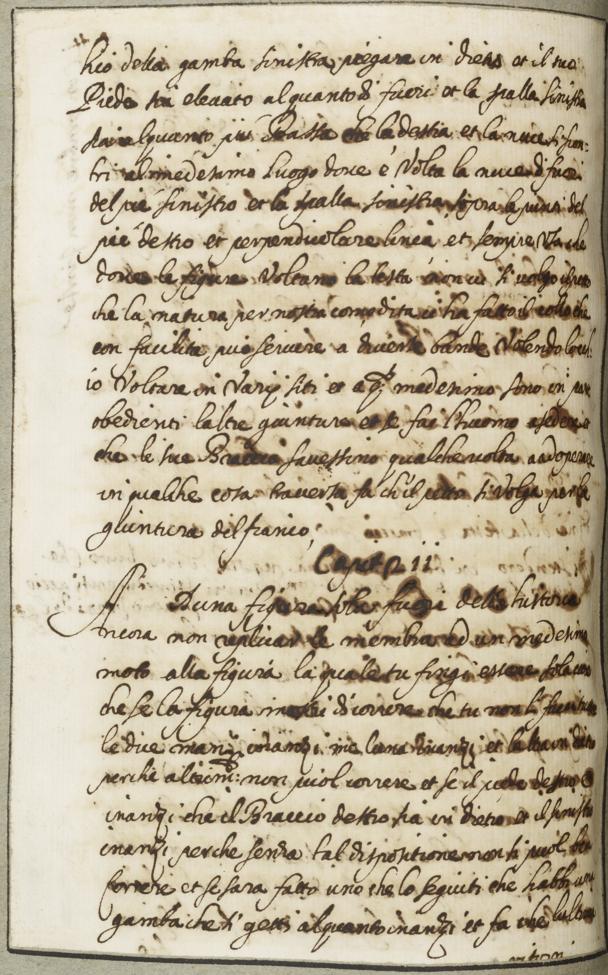 hio della gamba sinistra piegara in dieto et il suo
Piede sia elevato alquanto di fuori et la spalla sinistra
sia alquanto più Bassa che la destra et la nuce si scon-
tri al medesimo Luogo dove è Volta la nuce di fuori
del piè sinistro et la spalla sinistra sopra la punta del
piè destro et perpendicolare linea, et sempre usa che
dove le figure Voltano la testa non vi si volga il petto
che la natura per nostra comodita ci ha fatto il collo che
con facilita può servire a diverse bande Volendo l'och-
io Voltare in Varij siti et a q.o medesimo sono in parte
obedienti laltre giunture et se fai l'huomo a sedere et
che le sue Braccia havessino qualche volta a adoperare
in qualche cosa traversa fa ch'il petto si Volga per la
giuntura del fianco,
Capit.
D'una figura sola fuori della historia
Ancora non replicar le membra ad un medesimo
moto alla figura la quale tu fingi essere sola cioè
che se la figura mostri di correre che tu non li facci tutte
le due mani inanzi ma luna inanzi et laltra in dieto
perche altrim: non puol correre et se il piede destro è
inanzi che il Braccio destro sia in dietro et il sinistro
inanzi perche senza tal dispositione non si puol ben
correre et se sara fatto uno che lo seguiti che habbi una
gamba che si getti alquanto inanzi et fa che laltra